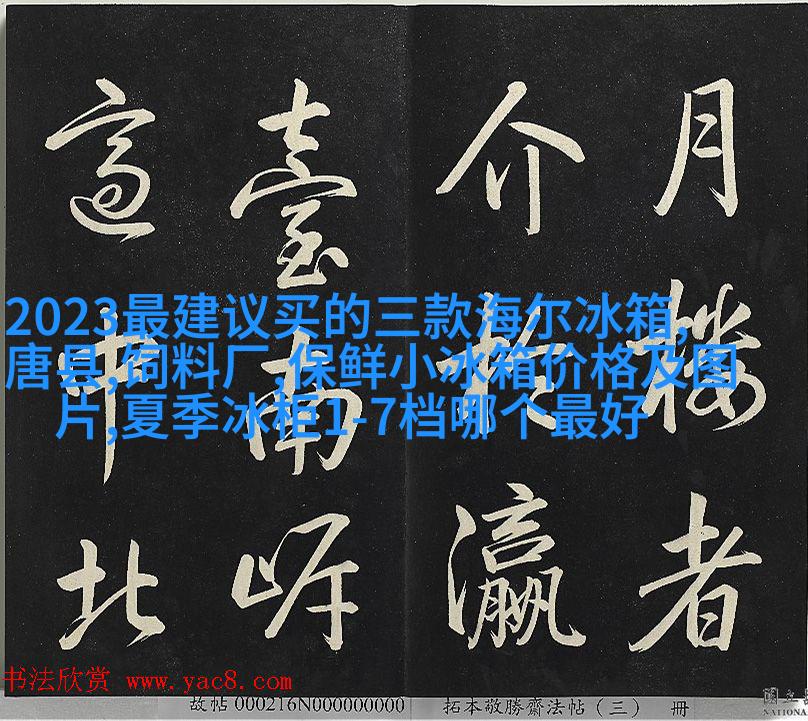 月樓者
介於瀛
臺南岸
適中北
2023最建议买的三款海尔冰箱,
唐县,饲料厂,保鲜小冰箱价格及图
片,夏季冰柜1-7档哪个最好
书法欣赏 www.yac8.com
故帖 000216N000000000 拓本敬勝齋法帖（三） 册
國立
NATIONA